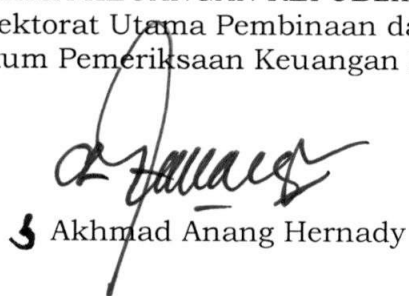 ektorat Utama Pembinaan da
um Pemeriksaan Keuangan
Akhmad Anang Hernady